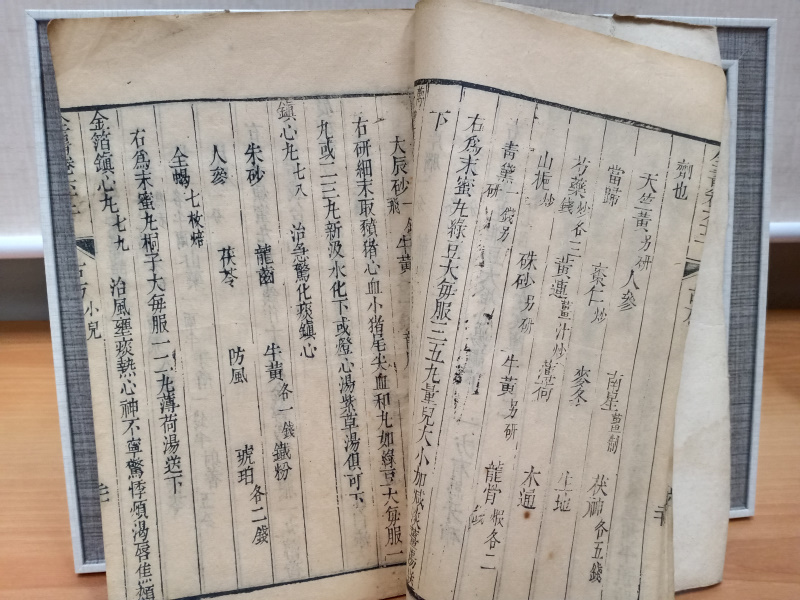 劑也
天竺黃另研 人參 南星薑制 茯神各五錢
當歸 棗仁炒 麥冬 生地
芍藥炒各三錢 黃連薑汁炒 薄荷 木通
山梔炒 硃砂另研 牛黃另研 龍骨煅各二錢
青黛一錢另研
右為末蜜丸菉豆大每服三五丸量兒大小加減
下
大辰砂一錢飛 牛黃一
右研細末取豶猪心血小猪尾尖血和丸如綠豆大每服一
九或二三丸新汲水化下或燈心湯紫草湯俱可下
鎮心丸七八 治急驚化痰鎮心
朱砂 龍齒 牛黃各一錢 鐵粉
人參 茯苓 防風 琥珀各二錢
全蝎七枚焙
右為末蜜丸桐子大每服一二丸薄荷湯送下
金箔鎮心丸七九 治風壅痰熱心神不寧驚悸煩渴唇焦
古方 小兒